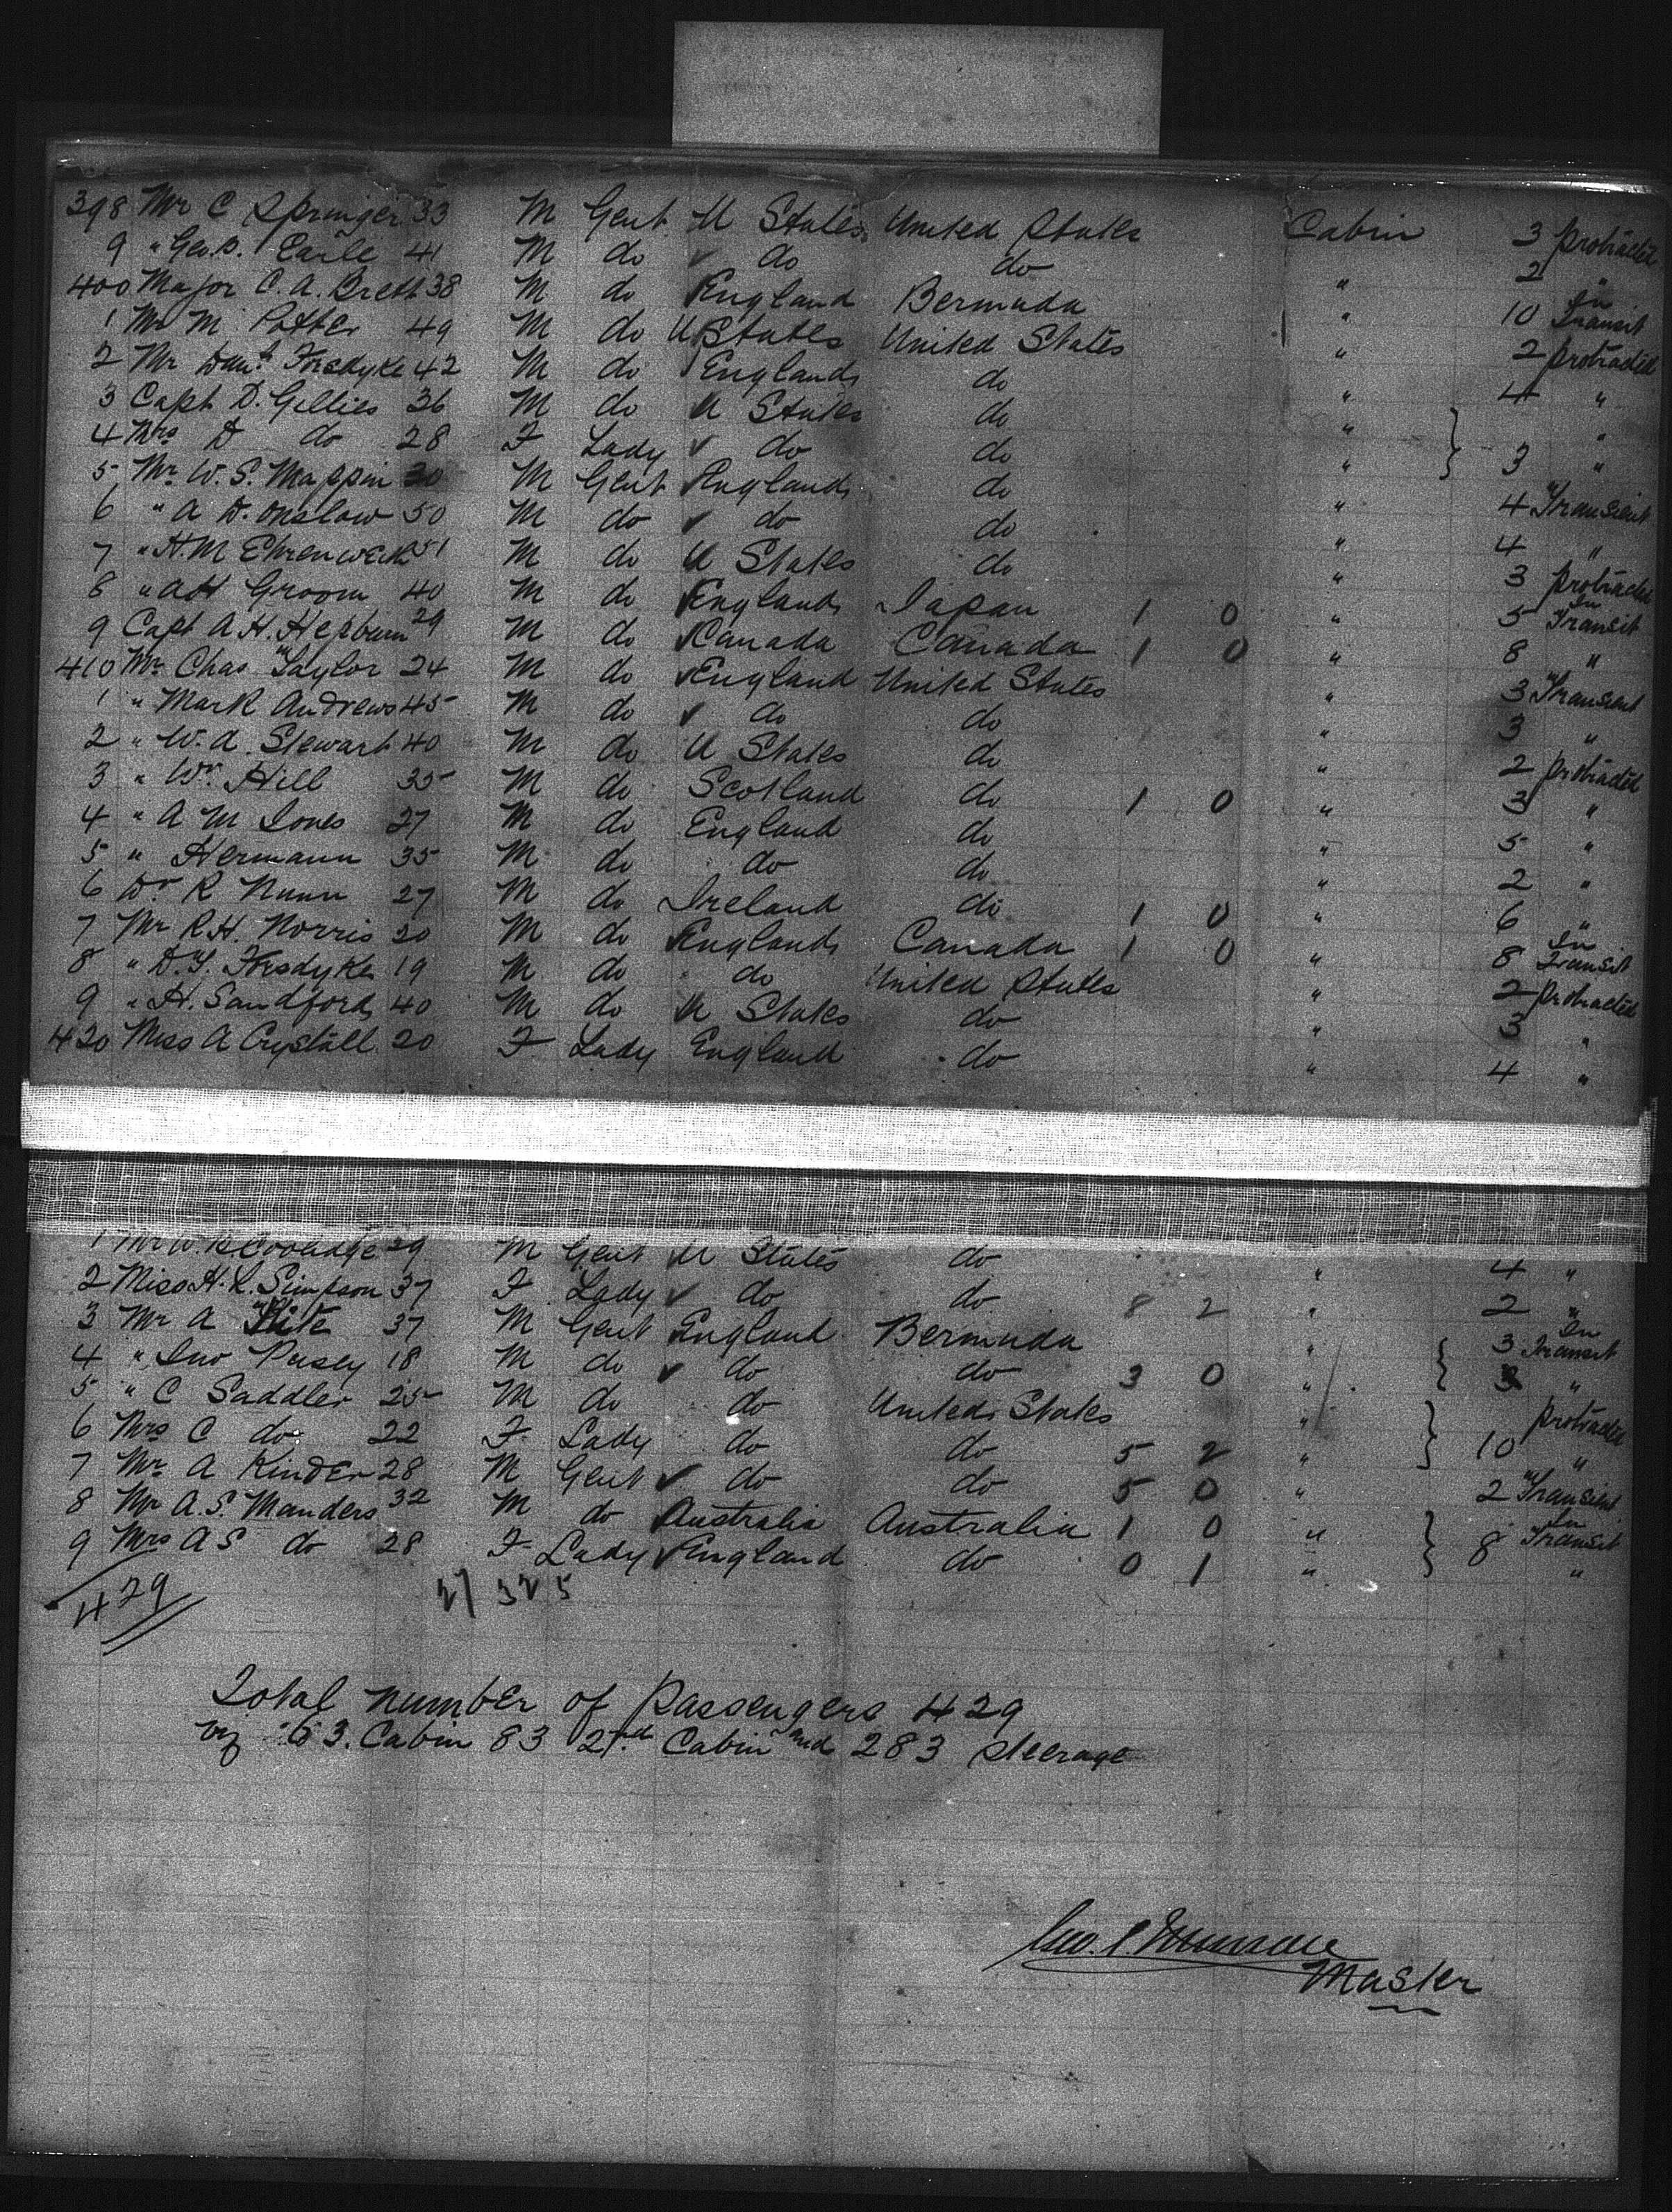 398 Mr C Springer 33 M Gent U States United States Cabin 3 protracted
9 " Geo. B. Earle 41 M do do do " 2 "
400 Major C. A. Brett 38 M do England Bermuda " 10 In Transit
1 Mr M Potter 49 M do U States United States " 2 protracted
2 Mr Danl Forsdyke 42 M do England do " 4 "
3 Capt D. Gillies 36 M do U States do " "
4 Mrs D do 28 F Lady do do " 3 "
5 Mr W. S. Mappin 30 M Gent England do " 4 Transient
6 " A D. Onslow 50 M do do do " 4 "
7 " H. M 51 M do U States do " 3 protracted
8 " A H Groom 40 M do England Japan 1 0 " 5 In Transit
9 Capt A. H. Hepburn 29 M do Canada Canada 1 0 " 8 "
410 Mr Chas Taylor 24 M do England United States " 3 Transient
1 " Mark Andrews 45 M do do do " 3 "
2 " W. A. Stewart 40 M do U States do " 2 protracted
3 " Wm Hill 35 M do Scotland do 1 0 " 3 "
4 " A M Jones 27 M do England do " 5 "
5 " Hermann 35 M do do do " 2 "
6 Dr R Nunn 27 M do Ireland do 1 0 " 6 "
7 Mr R. H. Norris 20 M do England Canada 1 0 " 8 In Transit
8 " D. Y. Forsdyke 19 M do do United States " 2 protracted
9 " H. Sandford 40 M do U States do " 3 "
420 Miss A Crystall 20 F Lady England do " 4 "
1 Mr W. R Coolidge 29 M Gent U States do " 4 "
2 Miss H. L. Simpson 37 F Lady do do 8 2 " 2 "
3 Mr A 37 M Gent England Bermuda " 3 In Transit
4 " Jno Pusey 18 M do do do 3 0 " 3 "
5 " C Saddler 25 M do do United States " protracted
6 Mrs C do 22 F Lady do do 5 2 " 10 "
7 Mr A Kinder 28 M Gent do do 5 0 " 2 Transient
8 Mr A. S. Manders 32 M do Australia Australia 1 0 " In Transit
9 Mrs A S do 28 F Lady England do 0 1 " 8 "
429
27 32 5
Total number of Passengers 429
viz 63. Cabin 83 2nd Cabin and 283 steerage
Master